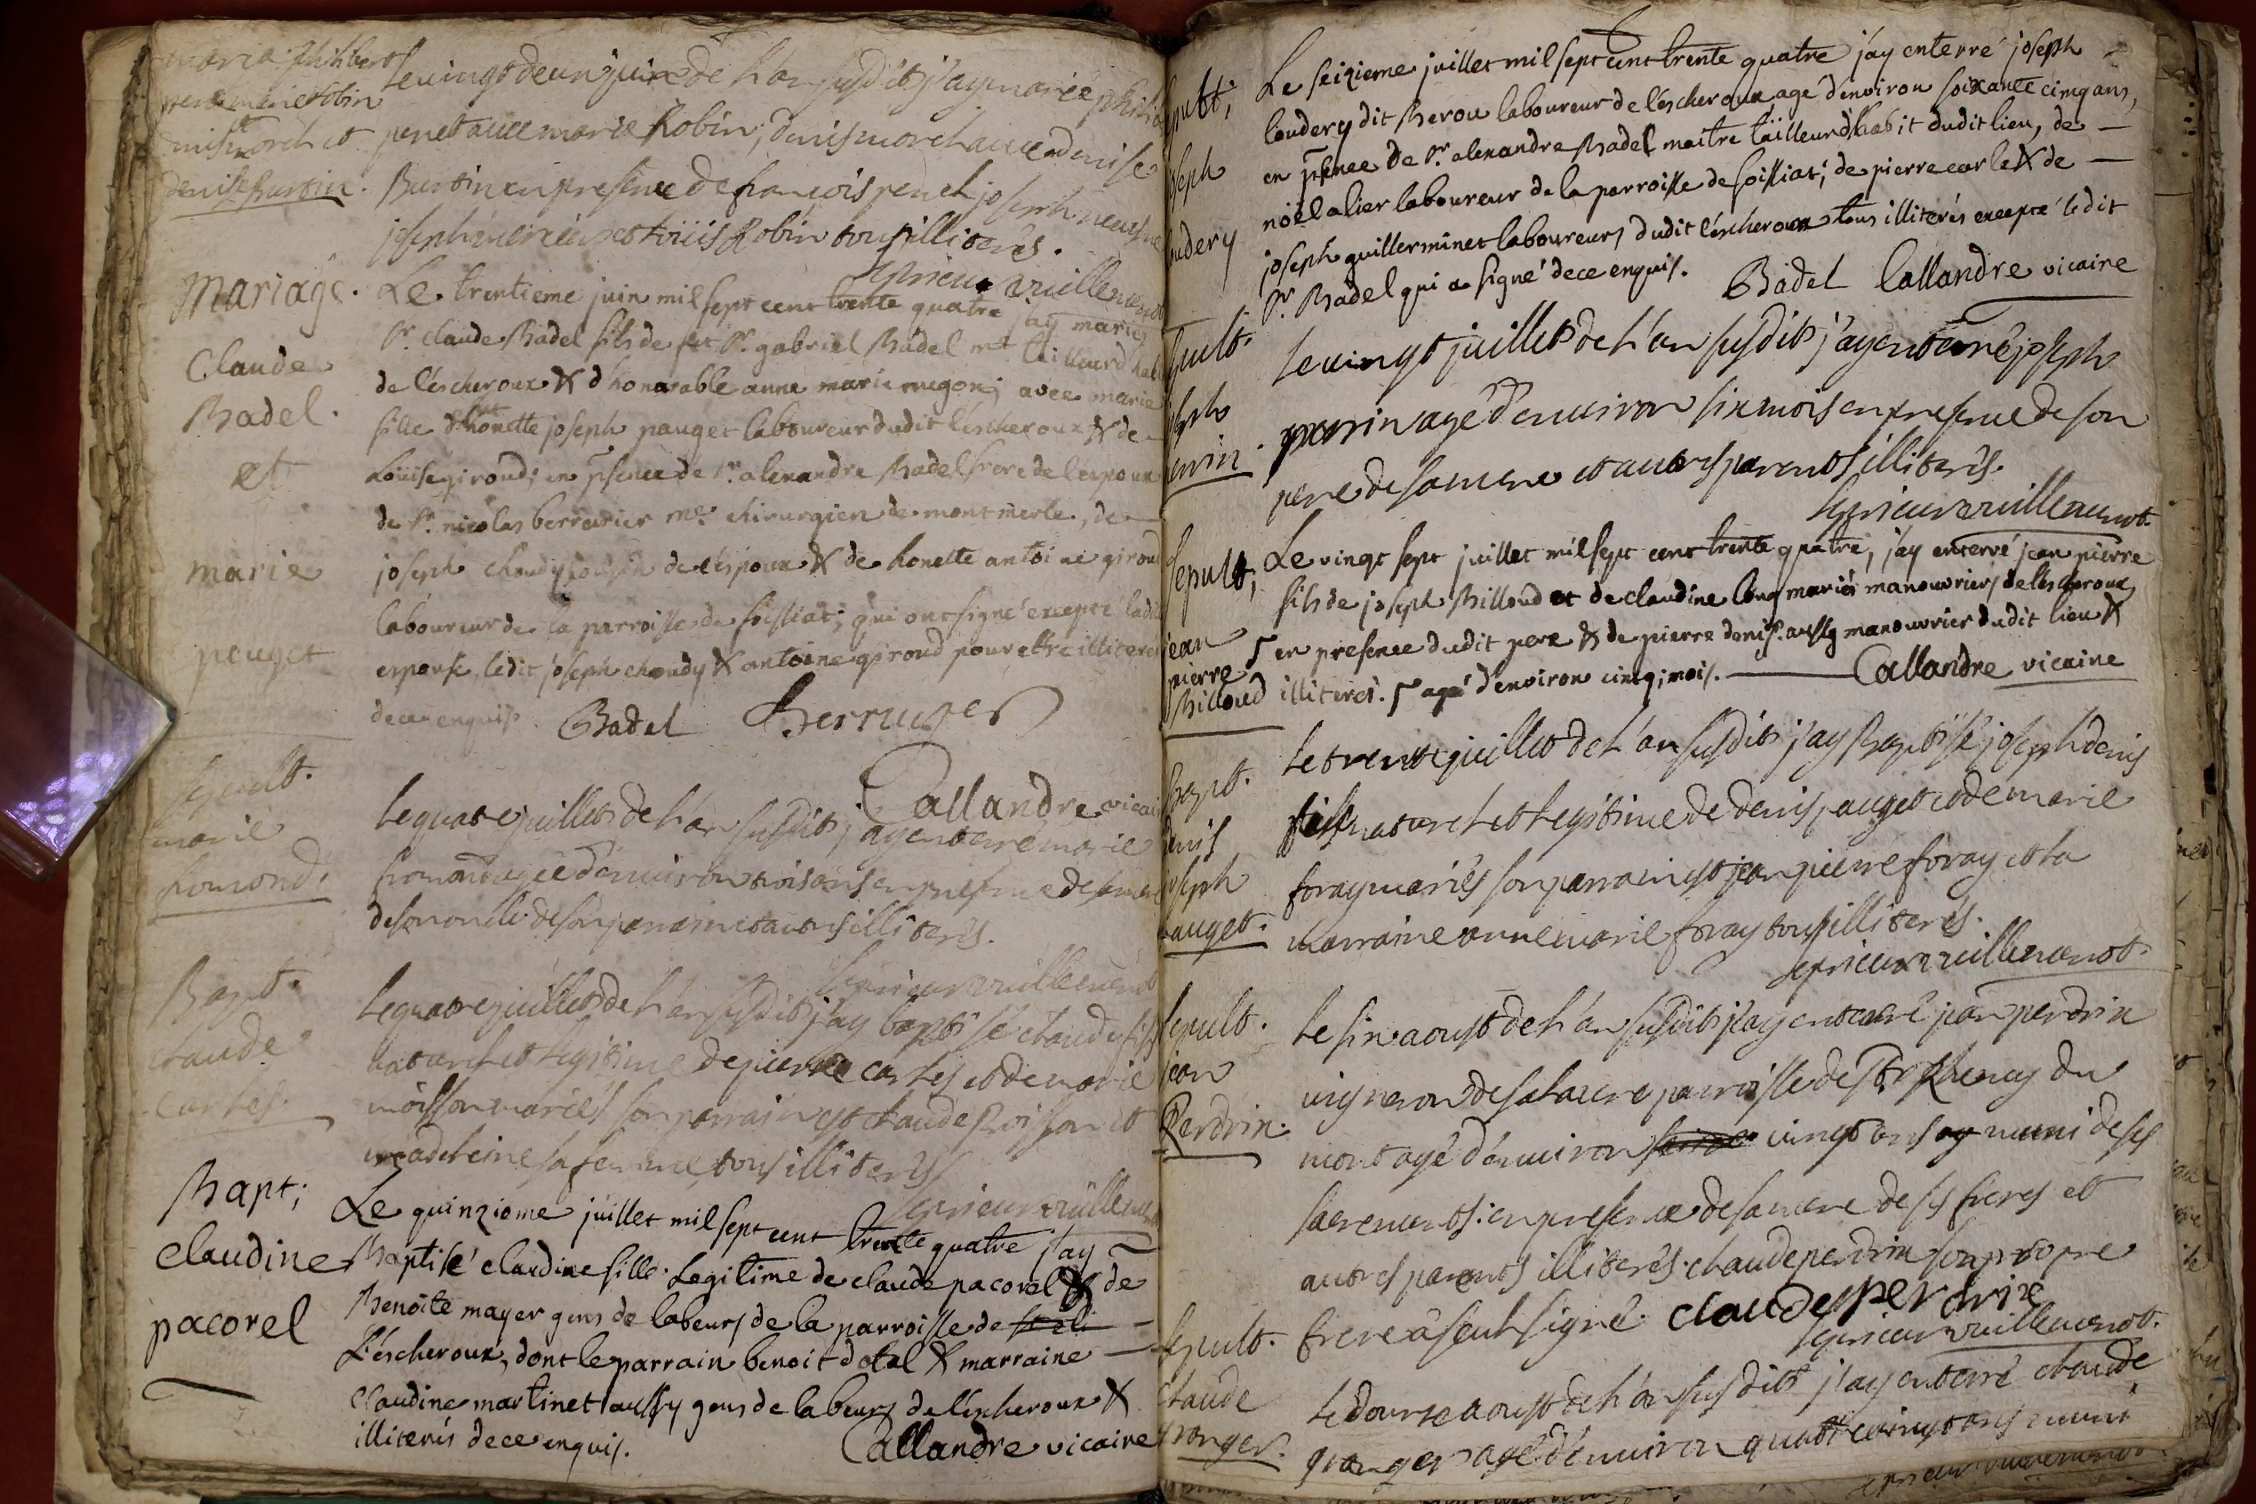 maria philibert
penet marie Robin
denis morel et
denise Burtin.
Le vingt deux juin de l'an susdit j'ay marié philib
penet avec marie Robin, denis morel avec denise
Burtin en presence de francois penet joseph
joseph et Loüis Robin tous illiterés.
Le prieur vuillemenot
Mariage.
Claude
Badel.
et
marie
pauget
Le trentieme juin mil sept cent trente quatre j'ay marié
Sr. claude Badel fils de feu Sr. gabriel Badel mt tailleur d'hab
de l'escheroux & d'honorable anne marie mugoni avec marie
fille d'honette joseph pauget laboureur dudit l'escheroux & de
Loüise giroud; en psence de Sr. alexandre Badel frere de l'espoux
de Sr. nicolas berrurier me. chirurgien de montmerle, de
joseph chaudy cousin de l'espoux & de honette antoine giroud
laboureur de la parroisse de foissiat; qui ont signé excepté ladit
espouse ledit joseph chaudy & antoine giroud pour estre illiteres
de ce enquis Badel Berrurier
Callandre vicai
sepult.
marie
fromond.
Le quatre juillet de l'an susdit j'ay enterré marie
fromond agée d'environ trois ans en presence de sa mere
de son oncle de son parrain et autres illiterés.
Le prieur vuillemenot
Bapt.
claude
carles.
Le quatre juillet de l'an susdit j'ay baptisé claude fils
naturel et legitime de pierre carles et de marie
moisson mariés son parrain est claude Poisson et
madeleine sa femme, tous illiterés
Le prieur vuillemenot
Bapt;
Claudine
pacorel
Le quinzieme juillet mil sept cent trente quatre j'ay
Baptisé claudine fille legitime de claude pacorel & de
Benoite mayer gens de labeurs de la parroisse de
L'escheroux, dont le parrain benoit dotal & marraine
Claudine martinet aussy gens de labeurs de l'escheroux &
illiterés de ce enquis.
Callandre vicaire
epult;
oseph
oudery
Le seizieme juillet mil sept cent trente quatre j'ay enterré joseph
loudery dit Berou laboureur de l'escheroux agé d'environ soixante cinq ans,
en psence de Sr. alexandre Badel maitre tailleur d'habit dudit lieu, de
noël alier laboureur de la parroisse de foissiat; de pierre carle & de
joseph guillerminet laboureurs dudit l'escheroux tous illiterés excepté ledit
Sr. Badel qui a signé de ce enquis. Badel Callandre vicaire
epult.
oseph
perrin.
Le vingt juillet de l'an susdit j'ay enterré joseph
perrin agé d'environ six mois en presence de son
pere de sa mere et autres parents illiterés.
Le prieur vuillemenot.
Sepult;
jean
pierre
Billoud
Le vingt sept juillet mil sept cent trente quatre, j'ay enterré jean pierre
fils de joseph Billoud et de claudine long mariés manouvriers de l'escheroux
en presence dudit pere & de pierre denis. aussy manouvrier dudit lieu &
illiterés. agé d'environ cinq mois. Callandre vicaire
bapt.
denis
joseph
pauget.
Le trente juillet de l'an susdit j'ay Baptisé joseph denis
fils naturel et legitime de denis pauget et de marie
foray mariés son parrain est jean pierre foray et la
marraine anne marie foray tous illiterés.
Le prieur vuillemenot.
Sepult.
jean
Perdrix.
Le six aoust de l'an susdit j'ay enterré jean perdrix
vigneron de parroisse de St Estienne du
mont agé d'environ vingt ans muni de ses
sacrements: en presence de sa mere de ses freres et
autres parents illiterés. claude perdrix son propre
frere a seul signé. claude Perdrix
Le prieur vuillemenot.
Sepult.
claude
granger.
Le douze aoust de l'an susdit j'ay enterré claude
granger agé d'environ quatre vingt ans muni